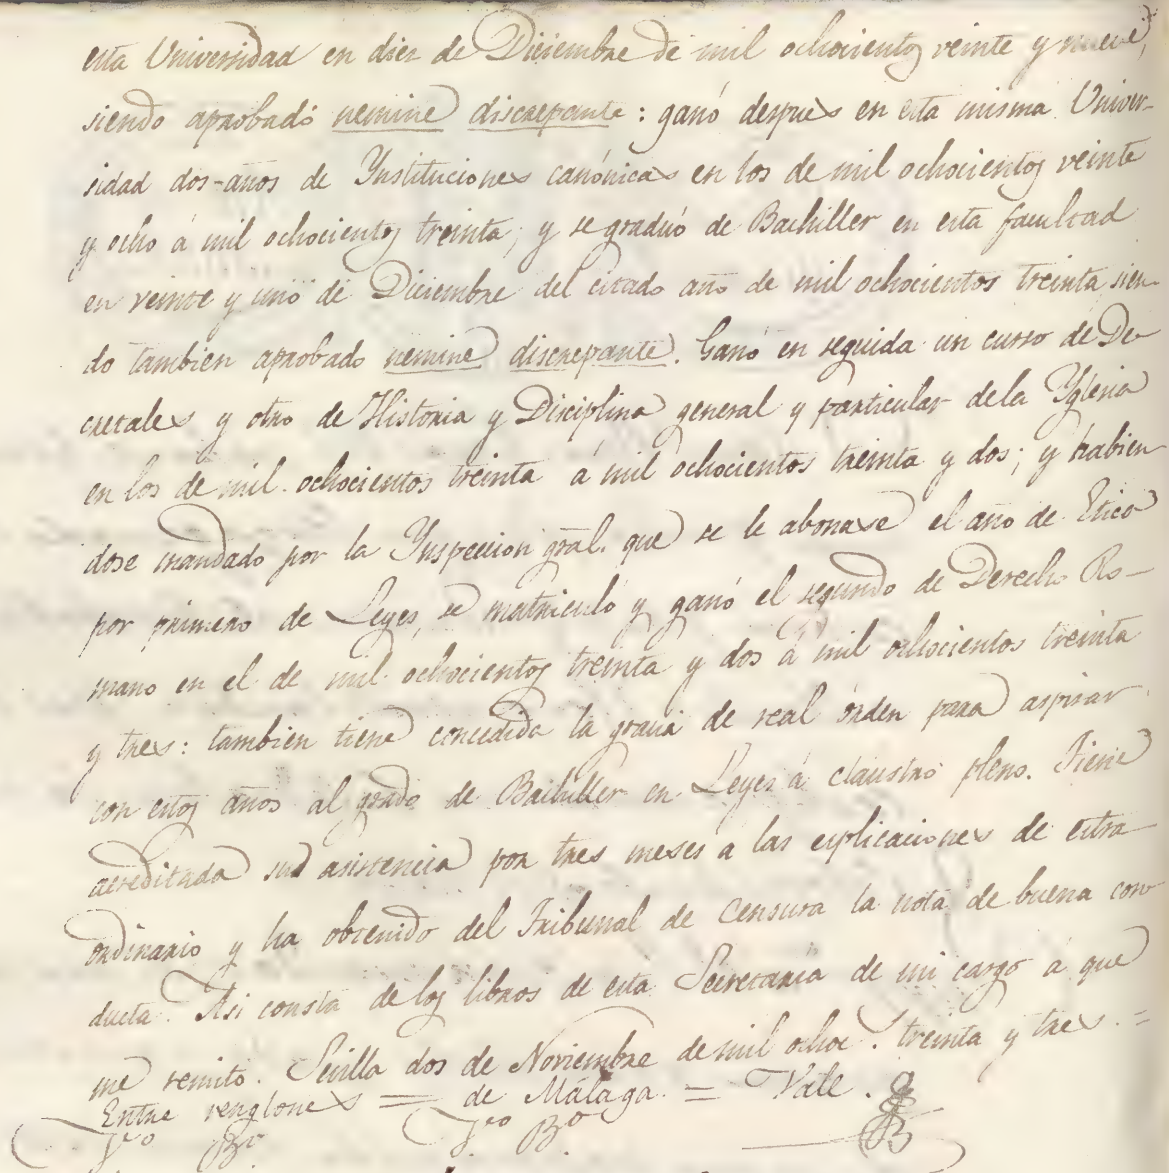 esta Universidad en diez de Diciembre de mil ochocientos veinte y nueve,
siendo aprobado nemine discrepante: ganó despues en esta misma Univer-
sidad dos años de Ynstituciones canónicas en los de mil ochocientos veinte
y ocho á mil ochocientos treinta, y se graduó de Bachiller en esta facultad
en veinte y uno de Diciembre del citado año de mil ochocientos treinta, sien-
do tambien aprobado nemine discrepante. Ganó en seguida un curso de De
cretales y otro de Historia y Disciplina general y particular dela Yglesia
en los de mil ochocientos treinta á mil ochocientos treinta y dos; y habien-
dose mandado por la Ynspeccion gral. que se le abonase el año de Etica
por primero de Leyes, se matriculó y ganó el segundo de Derecho Ro-
mano en el de mil ochocientos treinta y dos á mil ochocientos treinta
y tres: tambien tiene concedida la gracia de real órden para aspirar
con estos años al grado de Bachiller en Leyes á claustro pleno. Tiene
acreditada su asistencia por tres meses a las esplicaciones de estra-
ordinario y ha obtenido del Tribunal de Censura la nota de buena con
ducta. Asi consta de los libros de esta Secretaria de mi cargo á que
me remito. Sevilla dos de Noviembre de mil ochoc.s treinta y tres. =
Entre renglones = de Málaga = Vale.
V.to B.o V.to B.o